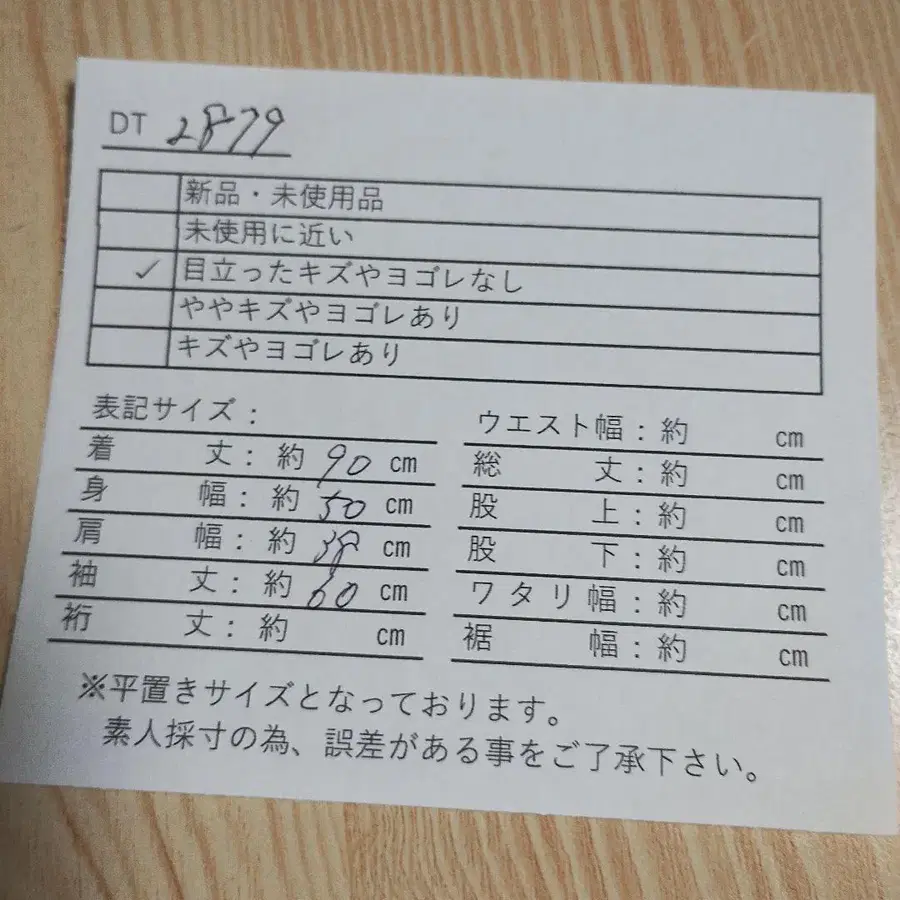 DT 2879
新品・未使用品
未使用に近い
✓ 目立ったキズやヨゴレなし
ややキズやヨゴレあり
キズやヨゴレあり
表記サイズ：
着丈：約 90 cm
身幅：約 50 cm
肩幅：約 38 cm
袖丈：約 60 cm
裄丈：約 cm
ウエスト幅：約 cm
総丈：約 cm
股上：約 cm
股下：約 cm
ワタリ幅：約 cm
裾幅：約 cm
※平置きサイズとなっております。
素人採寸の為、誤差がある事をご了承下さい。